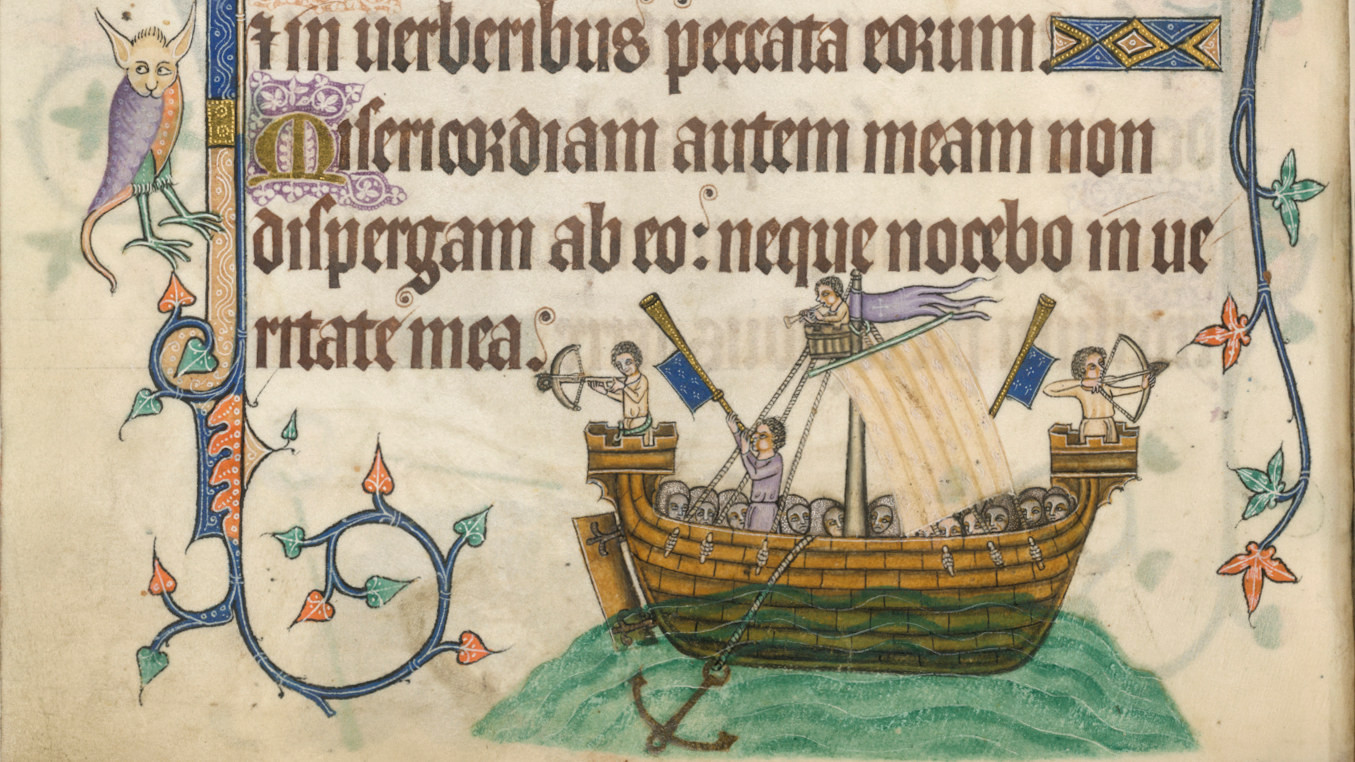 ⁊ in uerberibus peccata eorum.
Misericordiam autem meam non
dispergam ab eo: neque nocebo in ue
ritate mea.